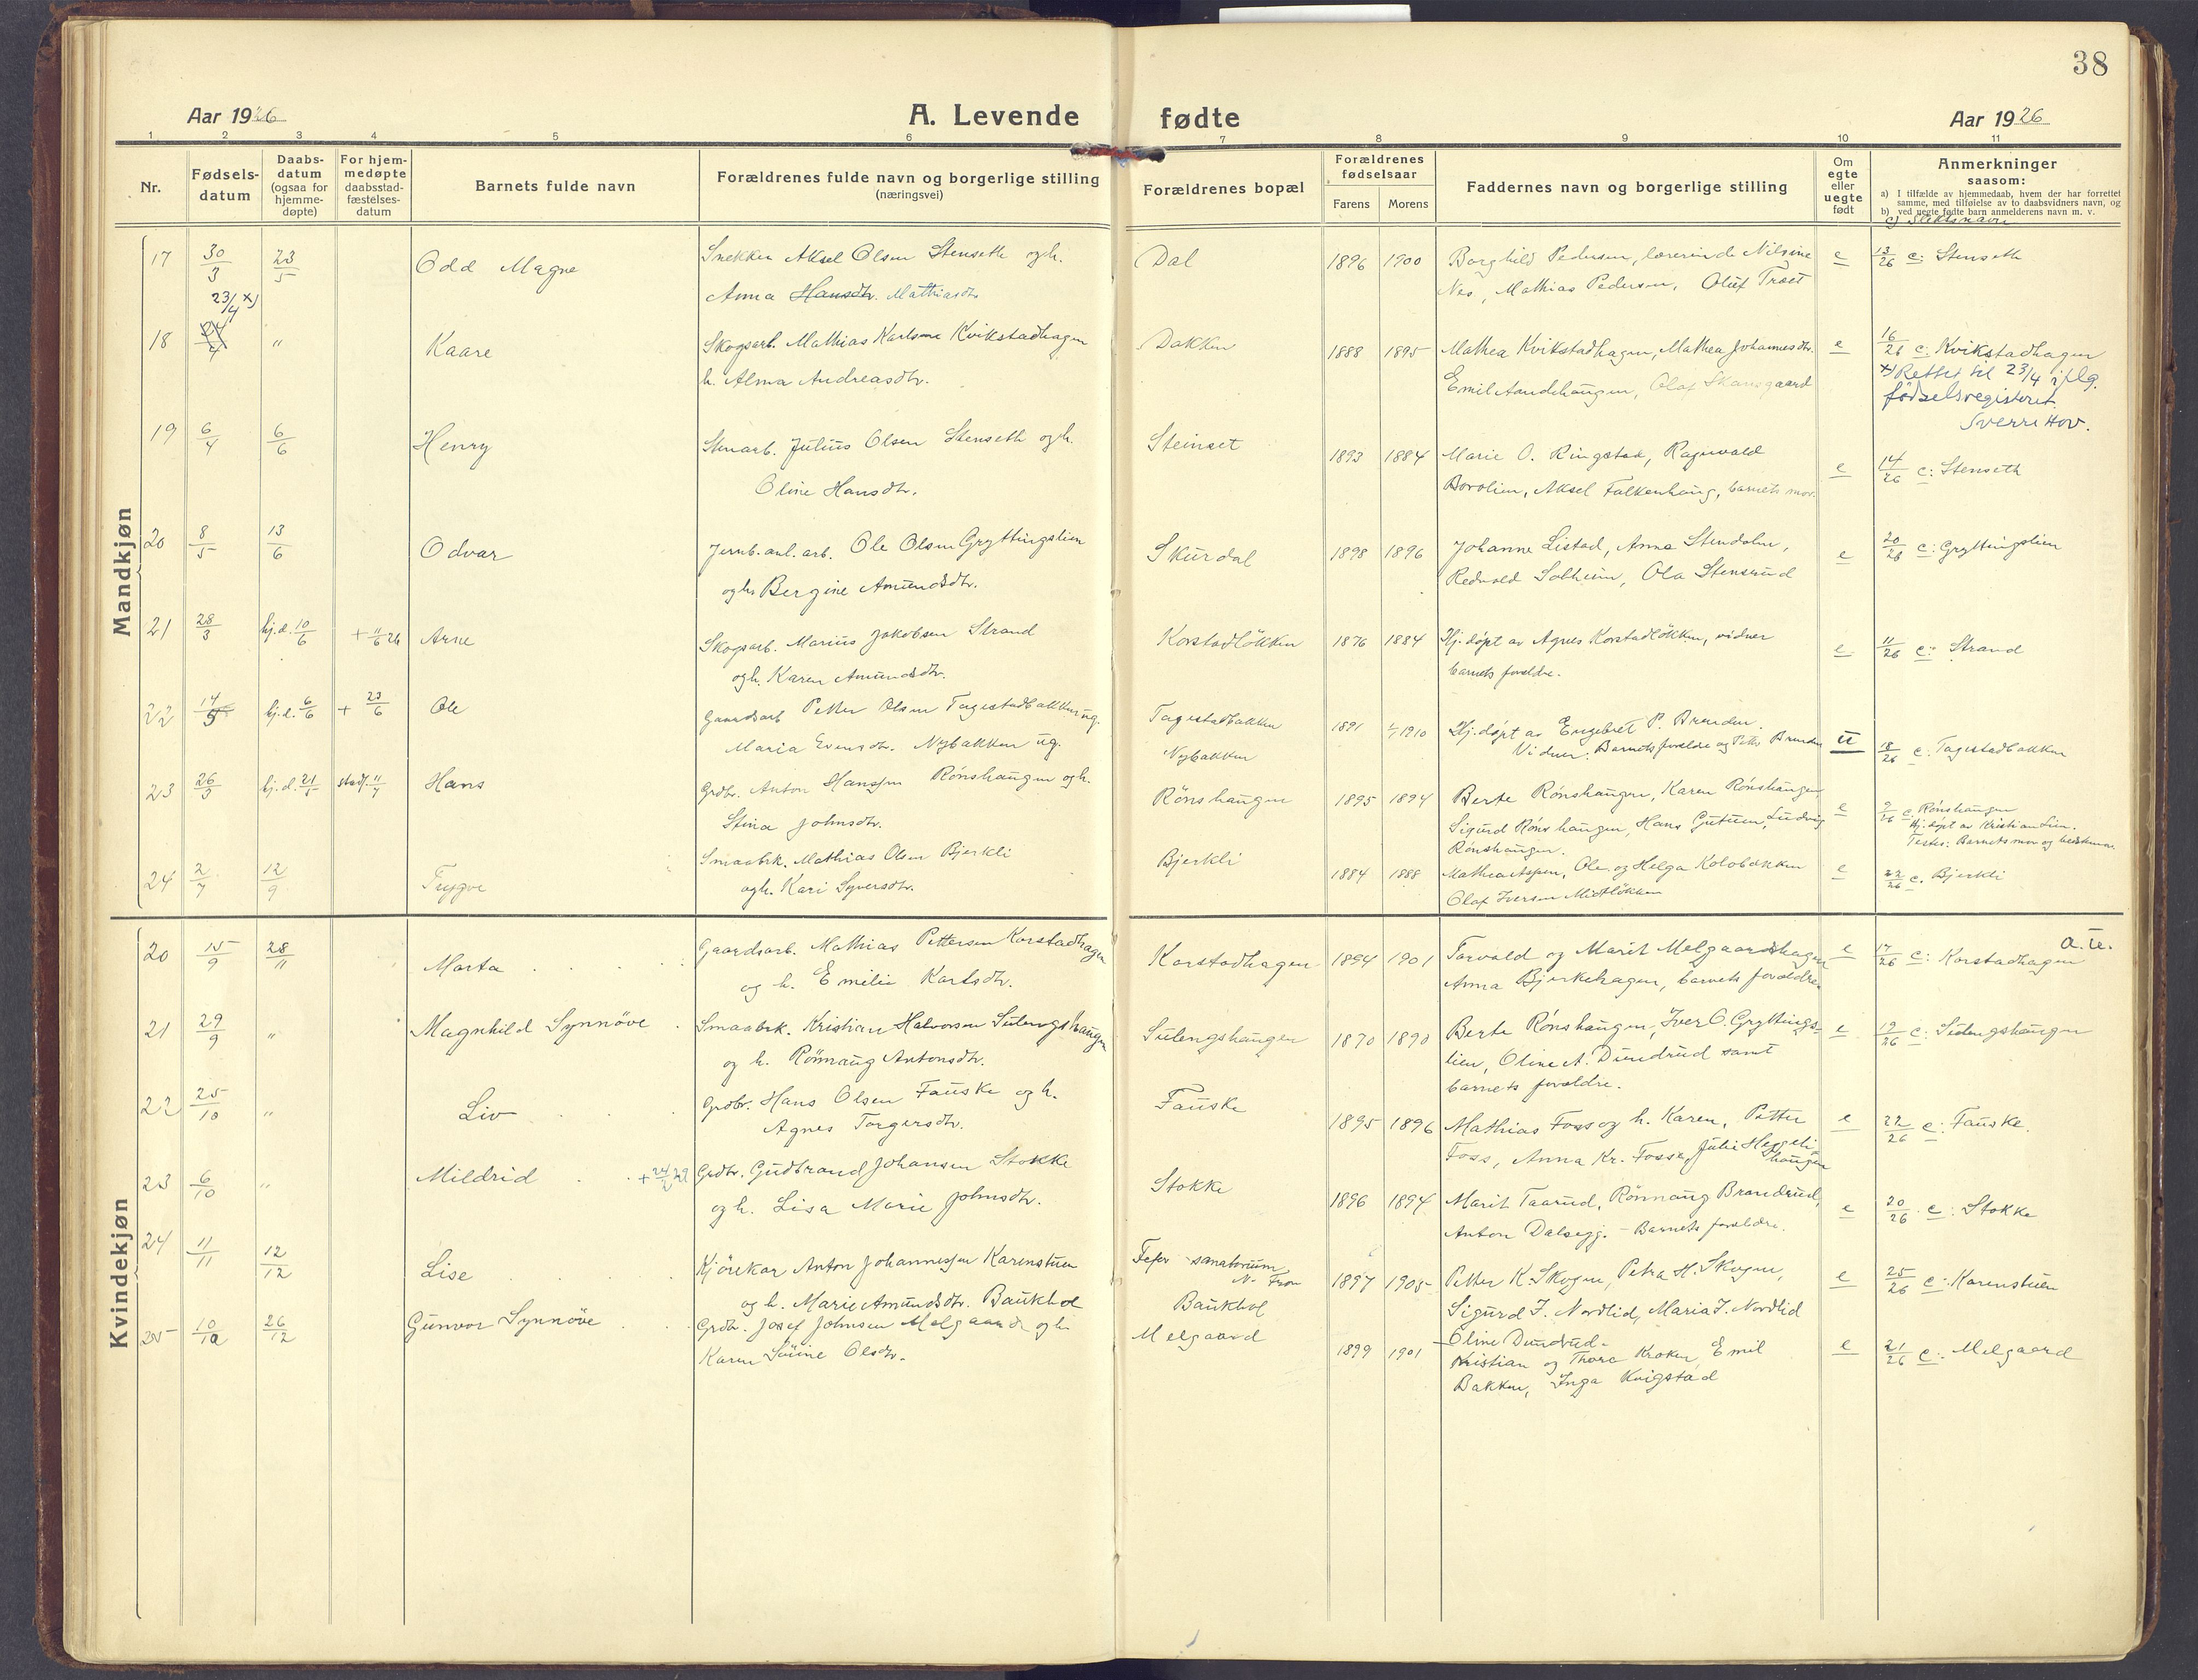 38
Aar 1926
A. Levende
fødte
Aar 1926
1 2 3 4 5 6 7 8 9 10 11
Nr.
Fødsels-datum
Daabs-datum (ogsaa for hjemme-døpte)
For hjem-medøpte daabsstad-fæstelses-datum
Barnets fulde navn
Forældrenes fulde navn og borgerlige stilling
(næringsvei)
Forældrenes bopæl
Forældrenes fødselsaar
Farens Morens
Faddernes navn og borgerlige stilling
Om egte eller uegte født
Anmerkninger
saasom:
a) I tilfælde av hjemmedaab, hvem der har forrettet
samme, med tilføielse av to daabsvidners navn, og
b) ved uegte fødte barn anmelderens navn m. v.
c) Slektsnavn
Mandkjøn
17 30/3 23/5 Odd Magne Snekker Aksel Olsen Stenseth og h. Dal 1896 1900 Borghild Pedersen, lærerinde Nilsine e 13/26 c: Stenseth
Anna Hansdtr. Mathiasdtr. Nes, Mathias Pedersen, Oluf Træet
23/4 x)
18 24/4 " Kaare Skogsarb. Mathias Karlsen Kvikstadhagen Bakken 1888 1895 Mathea Kvikstadhagen, Mathea Johannesdtr. e 16/26 c: Kvikstadhagen
h. Alma Andreasdtr. Emil Aandehaugen, Olaf Skansgaard x) Rettet til 23/4 iflg.
fødselsregisteret.
Sverre Hov.
19 6/4 6/6 Henry Stenarb. Julius Olsen Stenseth og h. Steinset 1893 1884 Marie O. Ringstad, Ragnvald e 14/26 c: Stenseth
Oline Hansdtr. Borolien, Aksel Falkenhaug, barnets mor.
20 8/5 13/6 Odvar Jernb.anl.arb. Ole Olsen Gryttingslien Skurdal 1898 1896 Johanne Listad, Anna Stendolen, e 20/26 c: Gryttingslien
og h. Bergine Amundsdtr. Redvald Solheim, Ola Stensrud
21 28/3 hj.d. 10/6 + 11/6 26 Arne Skogsarb. Marius Jakobsen Strand Korstadløkken 1876 1884 Hj.døpt av Agnes Korstadløkken, vidner e 11/26 c: Strand
og h. Karen Amundsdtr. barnets forældre.
22 14/5 hj.d. 6/6 + 23/6 Ole Gaardsarb Petter Olsen Tagestadbakken ug. Tagestadbakken 1891 1910 Hj.døpt av Engebret P. Brenden.
Maria Evensdtr. Nybakken ug. Nybakken Vidner: Barnets forældre og Petter Brenden u 18/26 c. Tagestadbakken
23 26/3 hj.d. 21/5 stadf. 11/7 Hans Grdbr. Anton Hanssen Rønshaugen og h. Rønshaugen 1895 1894 Berte Rønshaugen, Karen Rønshaugen, e 9/26 c. Rønshaugen
Stina Johnsdtr. Sigurd Rønshaugen, Hans Gutuen, Ludvig Hj.døpt av Kristian Lien.
Rønshaugen. Testes: Barnets mor og
24 2/7 12/9 Trygve Smaabrk. Mathias Olsen Bjerkli Bjerkli 1884 1888 Mathea Aspen, Ole og Helga Kolobakken e 22/26 c. Bjerkli
og h. Kari Syversdtr. Olaf Iversen Midtløkken
Kvindekjøn
20 15/9 28/11 Marta Gaardsarb. Mathias Pettersen Korstadhagen Korstadhagen 1894 1901 Torvald og Marit Melgaardshagen e 17/26 c: Korstadhagen a.u.
og h. Emilie Karlsdtr. Anna Bjerkehagen, barnets forældre.
21 29/9 " Magnhild Synnøve Smaabrk. Kristian Halvorsen Sulengshaugen Sulengshaugen 1870 1890 Berte Rønshaugen, Iver O. Gryttings- e 19/26 c: Sulengshaugen
og h. Rønnaug Antonsdtr. lien, Oline A. Dundrud samt
barnets forældre.
22 25/10 " Liv Grdbr. Hans Olsen Fauske og h. Fauske 1895 1896 Mathias Foss og h. Karen, Petter e 22/26 c: Fauske.
Agnes Torgersdtr. Foss, Anna Kr. Fosse, Julie Heggeli haugen
23 6/10 " Mildrid + 24/2 29 Grdbr. Gudbrand Johansen Stokke Stokke 1896 1894 Marit Taarud, Rønnaug Brandrud, e 20/26 c: Stokke
og h. Lisa Marie Johnsdtr. Anton Dalsegg. - Barnets forældre.
24 11/11 12/12 Lise Kjørekar Anton Johannessen Karenstuen Fefor sanatorium N. Fron 1897 1905 Petter K. Skogen, Petra H. Skogen, e 25/26 c: Karenstuen
og h. Marie Amundsdtr. Baukhol Baukhol Sigurd J. Nordlid, Maria J. Nordlid
25 10/10 26/12 Gunvor Synnøve Grdbr. Josef Johnsen Melgaard og h. Melgaard 1899 1901 Oline Dundrud. e 21/26 c: Melgaard
Karen Sørine Olsdtr. Kristian og Thora Kroken, Emil
Bakken, Inga Kvigstad